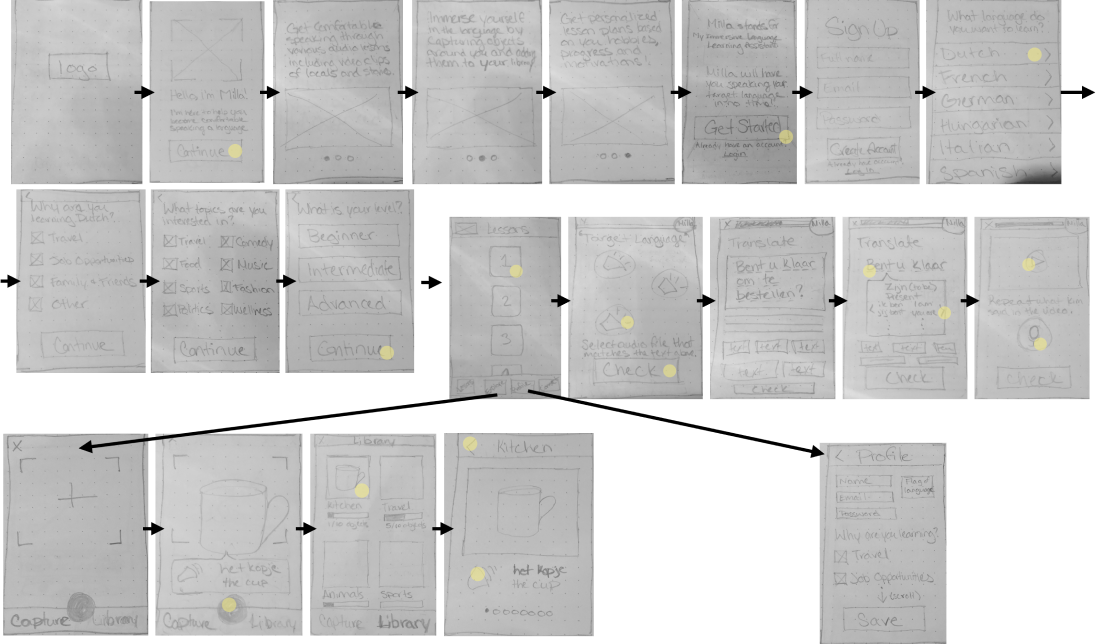 logo
Hello, I'm Milla!
I'm here to help you
become comfortable
speaking a language
Continue
Get comfortable
speaking through
various audio lessons
including video clips
of locals and
Immerse yourself
in the language by
capturing objects
around you and adding
them to your library!
Get personalized
lesson plans based
on you hobbies,
progress and
motivations!
Milla stands for
My Immersive Language
Learning Assistant
Milla will have
you speaking your
target language
in no time!
Get Started
Already have an account
Login
Sign Up
Full name
Email
Password
Create Account
Already have account
Log In
What language do
you want to learn?
Dutch
French
German
Hungarian
Italian
Spanish
Why are you
learning Dutch?
Travel
Job Opportunities
Family & Friends
Other
Continue
What topics are you
interested in?
Travel
Comedy
Food
Music
Sports
Fashion
Politics
Wellness
Continue
What is your level?
Beginner
Intermediate
Advanced
Continue
Lessons
1
2
3
Milla
"Target Language"
Select audio file that
matches the text above.
Check
Milla
Translate
Bent u klaar
om te
bestellen?
text text text
text text
Check
Milla
Translate
Bent u klaar
Zijn (to be)
Present
ik ben I am
jij bent you are
text text text
Check
Milla
Repeat what Kim
said in the video.
Check
X
Capture Library
het kopje
the cup
Capture Library
Library
Kitchen
Travel
Animals
Sports
Capture Library
Kitchen
het kopje
the cup
< Profile
Name
Email
Password
Flag of
language
Why are you learning?
Travel
Job Opportunities
(scroll)
Save